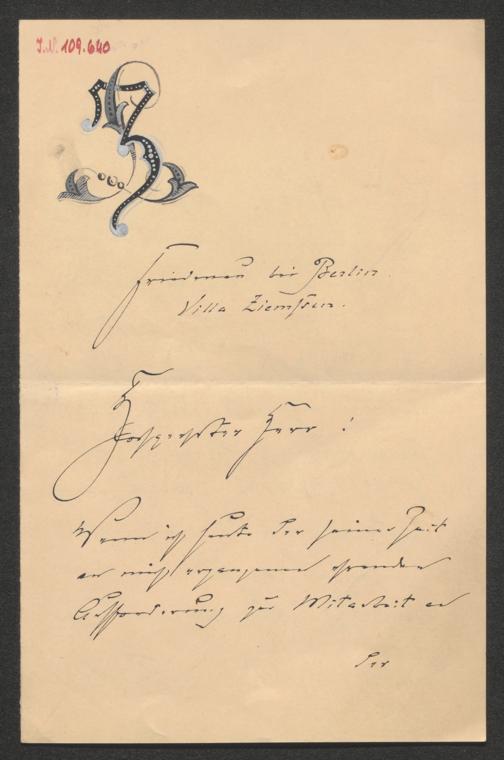 J.N. 109.640
Z
Friedenau bei Berlin.
Villa Ziemssen.
Hochgeehrter Herr!
Wenn ich heute der seiner Zeit
an mich ergangenen ehrenden
Aufforderung zur Mitarbeit an
der